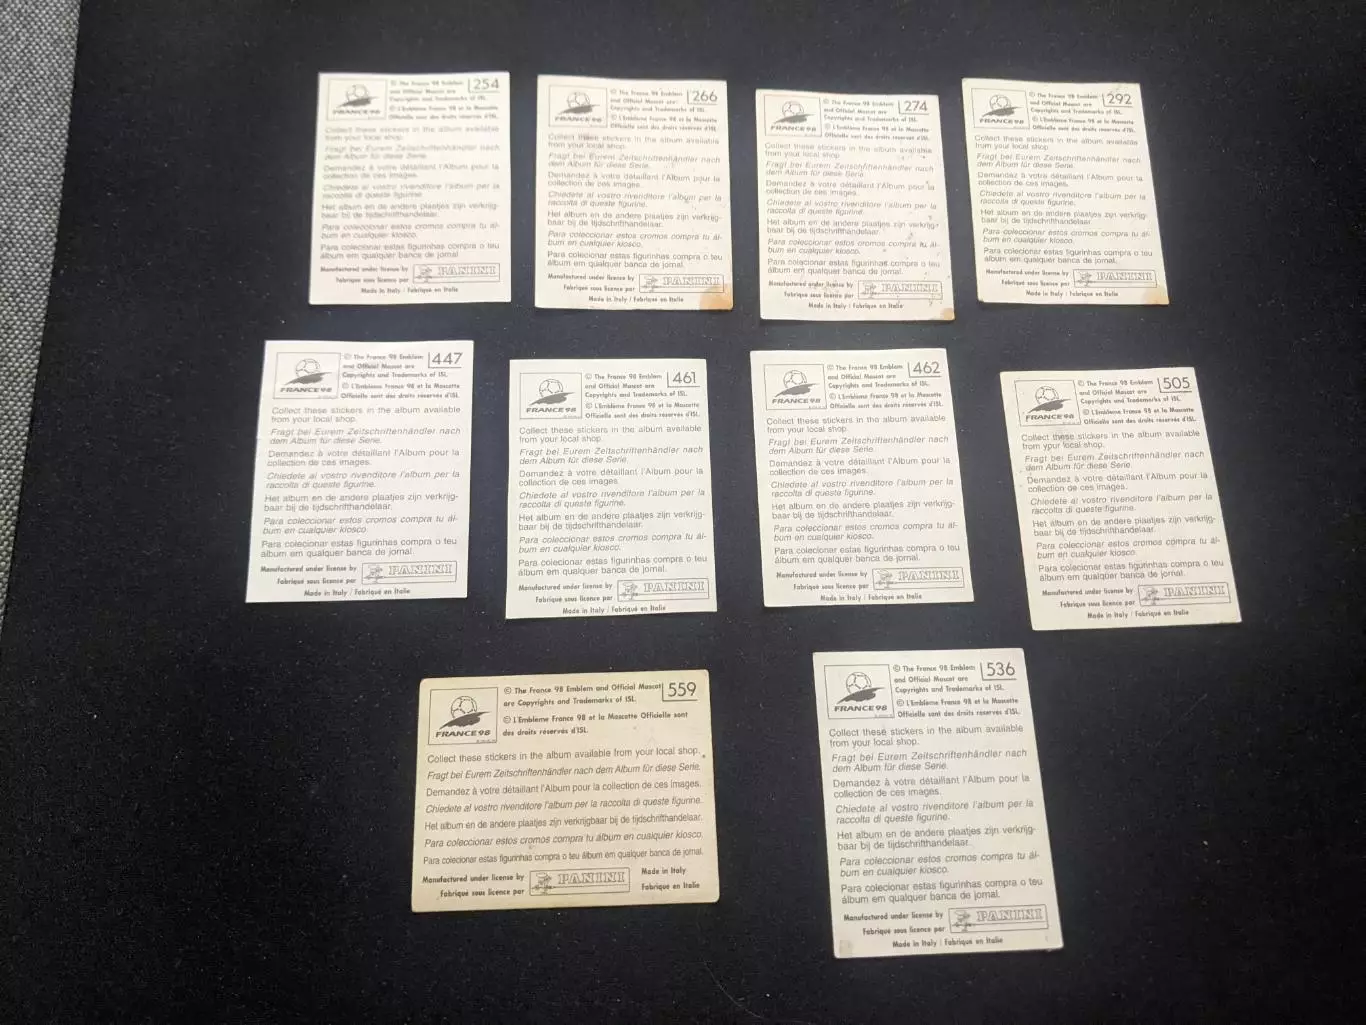 © The France 98 Emblem
and Official Mascot are
Copyrights and Trademarks of ISL.
© L'Emblème France 98 et la Mascotte
Officielle sont des droits réservés d'ISL.
254
FRANCE 98
Collect these stickers in the album available
from your local shop.
Fragt bei Eurem Zeitschriftenhändler nach
dem Album für diese Serie.
Demandez à votre détaillant l'Album pour la
collection de ces images.
Chiedete al vostro rivenditore l'album per la
raccolta di queste figurine.
Het album en de andere plaatjes zijn verkrijg-
baar bij de tijdschrifthandelaar.
Para coleccionar estos cromos compra tu ál-
bum en cualquier kiosco.
Para colecionar estas figurinhas compra o teu
álbum em qualquer banca de jornal.
Manufactured under license by
Fabriqué sous licence par
PANINI
Made in Italy / Fabriqué en Italie
© The France 98 Emblem
and Official Mascot are
Copyrights and Trademarks of ISL.
© L'Emblème France 98 et la Mascotte
Officielle sont des droits réservés d'ISL.
266
FRANCE 98
Collect these stickers in the album available
from your local shop.
Fragt bei Eurem Zeitschriftenhändler nach
dem Album für diese Serie.
Demandez à votre détaillant l'Album pour la
collection de ces images.
Chiedete al vostro rivenditore l'album per la
raccolta di queste figurine.
Het album en de andere plaatjes zijn verkrijg-
baar bij de tijdschrifthandelaar.
Para coleccionar estos cromos compra tu ál-
bum en cualquier kiosco.
Para colecionar estas figurinhas compra o teu
álbum em qualquer banca de jornal.
Manufactured under license by
Fabriqué sous licence par
PANINI
Made in Italy / Fabriqué en Italie
© The France 98 Emblem
and Official Mascot are
Copyrights and Trademarks of ISL.
© L'Emblème France 98 et la Mascotte
Officielle sont des droits réservés d'ISL.
274
FRANCE 98
Collect these stickers in the album available
from your local shop.
Fragt bei Eurem Zeitschriftenhändler nach
dem Album für diese Serie.
Demandez à votre détaillant l'Album pour la
collection de ces images.
Chiedete al vostro rivenditore l'album per la
raccolta di queste figurine.
Het album en de andere plaatjes zijn verkrijg-
baar bij de tijdschrifthandelaar.
Para coleccionar estos cromos compra tu ál-
bum en cualquier kiosco.
Para colecionar estas figurinhas compra o teu
álbum em qualquer banca de jornal.
Manufactured under license by
Fabriqué sous licence par
PANINI
Made in Italy / Fabriqué en Italie
© The France 98 Emblem
and Official Mascot are
Copyrights and Trademarks of ISL.
© L'Emblème France 98 et la Mascotte
Officielle sont des droits réservés d'ISL.
292
FRANCE 98
Collect these stickers in the album available
from your local shop.
Fragt bei Eurem Zeitschriftenhändler nach
dem Album für diese Serie.
Demandez à votre détaillant l'Album pour la
collection de ces images.
Chiedete al vostro rivenditore l'album per la
raccolta di queste figurine.
Het album en de andere plaatjes zijn verkrijg-
baar bij de tijdschrifthandelaar.
Para coleccionar estos cromos compra tu ál-
bum en cualquier kiosco.
Para colecionar estas figurinhas compra o teu
álbum em qualquer banca de jornal.
Manufactured under license by
Fabriqué sous licence par
PANINI
Made in Italy / Fabriqué en Italie
© The France 98 Emblem
and Official Mascot are
Copyrights and Trademarks of ISL.
© L'Emblème France 98 et la Mascotte
Officielle sont des droits réservés d'ISL.
447
FRANCE 98
Collect these stickers in the album available
from your local shop.
Fragt bei Eurem Zeitschriftenhändler nach
dem Album für diese Serie.
Demandez à votre détaillant l'Album pour la
collection de ces images.
Chiedete al vostro rivenditore l'album per la
raccolta di queste figurine.
Het album en de andere plaatjes zijn verkrijg-
baar bij de tijdschrifthandelaar.
Para coleccionar estos cromos compra tu ál-
bum en cualquier kiosco.
Para colecionar estas figurinhas compra o teu
álbum em qualquer banca de jornal.
Manufactured under license by
Fabriqué sous licence par
PANINI
Made in Italy / Fabriqué en Italie
© The France 98 Emblem
and Official Mascot are
Copyrights and Trademarks of ISL.
© L'Emblème France 98 et la Mascotte
Officielle sont des droits réservés d'ISL.
461
FRANCE 98
Collect these stickers in the album available
from your local shop.
Fragt bei Eurem Zeitschriftenhändler nach
dem Album für diese Serie.
Demandez à votre détaillant l'Album pour la
collection de ces images.
Chiedete al vostro rivenditore l'album per la
raccolta di queste figurine.
Het album en de andere plaatjes zijn verkrijg-
baar bij de tijdschrifthandelaar.
Para coleccionar estos cromos compra tu ál-
bum en cualquier kiosco.
Para colecionar estas figurinhas compra o teu
álbum em qualquer banca de jornal.
Manufactured under license by
Fabriqué sous licence par
PANINI
Made in Italy / Fabriqué en Italie
© The France 98 Emblem
and Official Mascot are
Copyrights and Trademarks of ISL.
© L'Emblème France 98 et la Mascotte
Officielle sont des droits réservés d'ISL.
462
FRANCE 98
Collect these stickers in the album available
from your local shop.
Fragt bei Eurem Zeitschriftenhändler nach
dem Album für diese Serie.
Demandez à votre détaillant l'Album pour la
collection de ces images.
Chiedete al vostro rivenditore l'album per la
raccolta di queste figurine.
Het album en de andere plaatjes zijn verkrijg-
baar bij de tijdschrifthandelaar.
Para coleccionar estos cromos compra tu ál-
bum en cualquier kiosco.
Para colecionar estas figurinhas compra o teu
álbum em qualquer banca de jornal.
Manufactured under license by
Fabriqué sous licence par
PANINI
Made in Italy / Fabriqué en Italie
© The France 98 Emblem
and Official Mascot are
Copyrights and Trademarks of ISL.
© L'Emblème France 98 et la Mascotte
Officielle sont des droits réservés d'ISL.
505
FRANCE 98
Collect these stickers in the album available
from your local shop.
Fragt bei Eurem Zeitschriftenhändler nach
dem Album für diese Serie.
Demandez à votre détaillant l'Album pour la
collection de ces images.
Chiedete al vostro rivenditore l'album per la
raccolta di queste figurine.
Het album en de andere plaatjes zijn verkrijg-
baar bij de tijdschrifthandelaar.
Para coleccionar estos cromos compra tu ál-
bum en cualquier kiosco.
Para colecionar estas figurinhas compra o teu
álbum em qualquer banca de jornal.
Manufactured under license by
Fabriqué sous licence par
PANINI
Made in Italy / Fabriqué en Italie
© The France 98 Emblem and Official Mascot
are Copyrights and Trademarks of ISL.
© L'Emblème France 98 et la Mascotte Officielle sont
des droits réservés d'ISL.
559
FRANCE 98
Collect these stickers in the album available from your local shop.
Fragt bei Eurem Zeitschriftenhändler nach dem Album für diese Serie.
Demandez à votre détaillant l'Album pour la collection de ces images.
Chiedete al vostro rivenditore l'album per la raccolta di queste figurine.
Het album en de andere plaatjes zijn verkrijgbaar bij de tijdschrifthandelaar.
Para coleccionar estos cromos compra tu álbum en cualquier kiosco.
Para colecionar estas figurinhas compra o teu álbum em qualquer banca de jornal.
Manufactured under license by
Fabriqué sous licence par
PANINI
Made in Italy
Fabriqué en Italie
© The France 98 Emblem
and Official Mascot are
Copyrights and Trademarks of ISL.
© L'Emblème France 98 et la Mascotte
Officielle sont des droits réservés d'ISL.
536
FRANCE 98
Collect these stickers in the album available
from your local shop.
Fragt bei Eurem Zeitschriftenhändler nach
dem Album für diese Serie.
Demandez à votre détaillant l'Album pour la
collection de ces images.
Chiedete al vostro rivenditore l'album per la
raccolta di queste figurine.
Het album en de andere plaatjes zijn verkrijg-
baar bij de tijdschrifthandelaar.
Para coleccionar estos cromos compra tu ál-
bum en cualquier kiosco.
Para colecionar estas figurinhas compra o teu
álbum em qualquer banca de jornal.
Manufactured under license by
Fabriqué sous licence par
PANINI
Made in Italy / Fabriqué en Italie